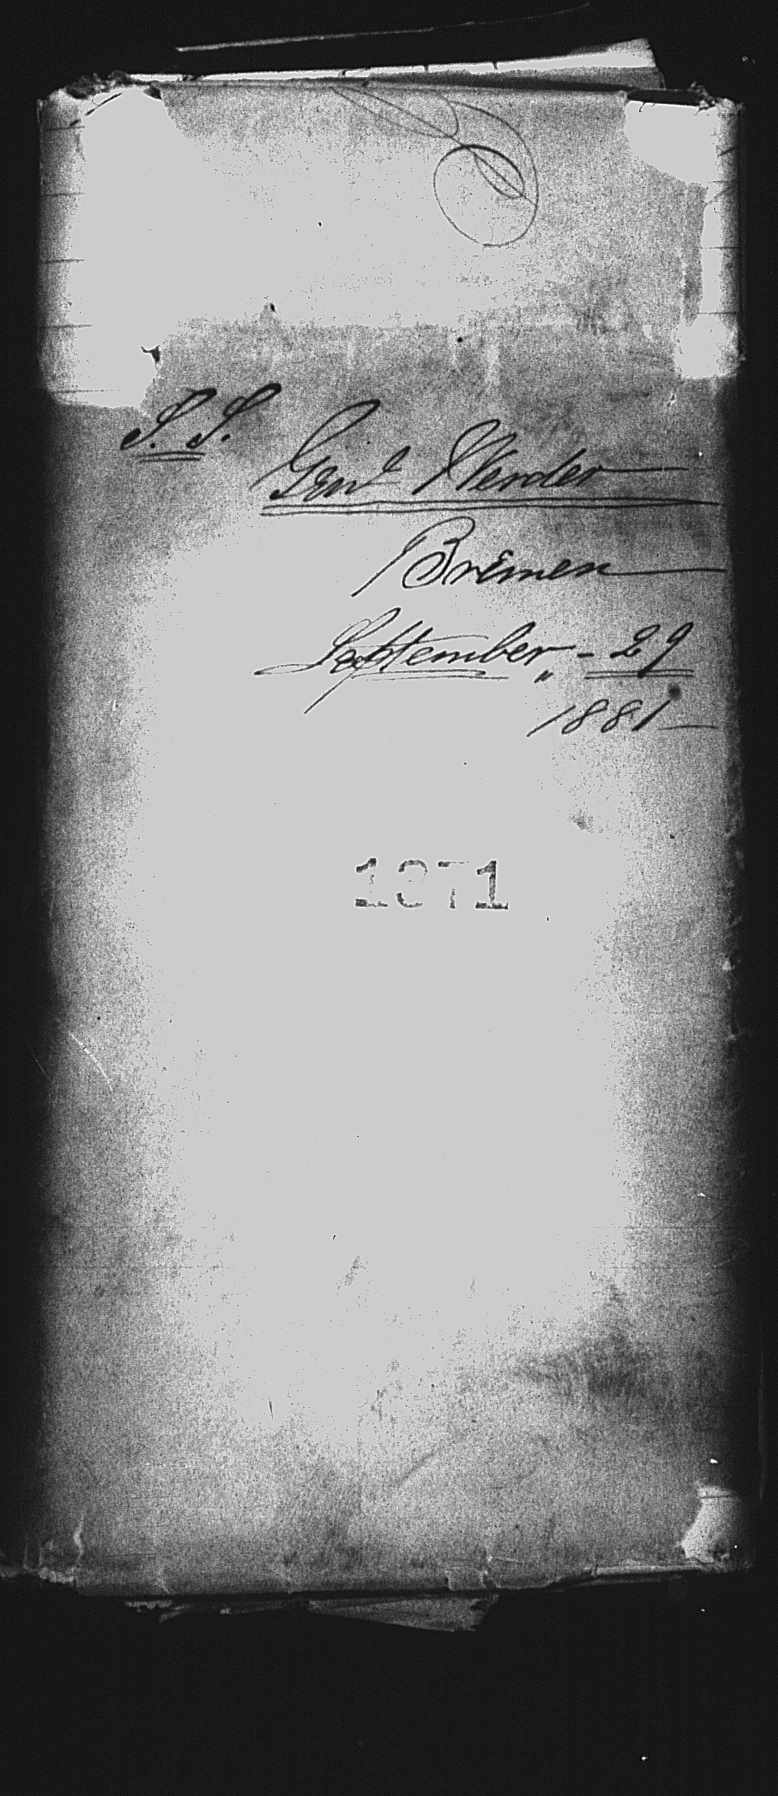 S. S.
Genl Werder
Bremen
September - 29
1881
1371